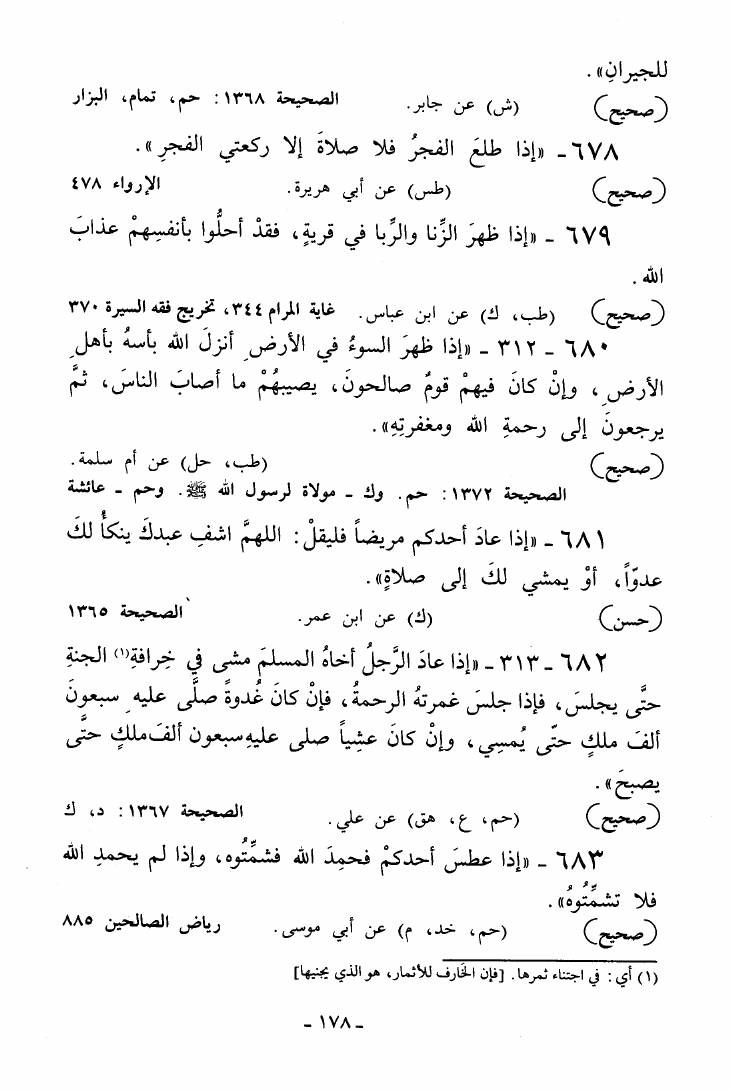 للجيرانِ».
(صحيح) (ش) عن جابر. الصحيحة ١٣٦٨: حم، تمام، البزار
٦٧٨ـ «إذا طلعَ الفجرُ فلا صلاةَ إلا ركعتي الفجرِ».
(صحيح) (طس) عن أبي هريرة. الإرواء ٤٧٨
٦٧٩ ـ «إذا ظهرَ الزِّنا والرِّبا في قريةٍ، فقدْ أحلُّوا بأنفسِهمْ عذابَ
الله .
(صحيح) (طب، ك) عن ابن عباس. غاية المرام ٣٤٤، تخريج فقه السيرة ٣٧٠
٦٨٠ ـ ٣١٢ ـ «إذا ظهرَ السوءُ في الأرضِ أنزلَ الله بأسهُ بأهلِ
الأرضِ، وإنْ كانَ فيهمْ قومٌ صالحونَ، يصيبهُمْ ما أصابَ الناسَ، ثمَّ
يرجعونَ إلى رحمةِ الله ومغفرتِهِ».
(صحيح) (طب، حل) عن أم سلمة.
الصحيحة ١٣٧٢: حم. وك ـ مولاة لرسول الله ﷺ. وحم ـ عائشة
٦٨١ ـ «إذا عادَ أحدكم مريضاً فليقلْ: اللهمَّ اشفِ عبدكَ ينكأُ لكَ
عدوّاً، أوْ يمشي لكَ إلى صلاةٍ».
(حسن) (ك) عن ابن عمر. الصحيحة ١٣٦٥
٦٨٢ ـ ٣١٣ ـ «إذا عادَ الرَّجلُ أخاهُ المسلمَ مشى في خِرافةِ(١) الجنةِ
حتَّى يجلسَ، فإذا جلسَ غمرتهُ الرحمةُ، فإنْ كانَ غُدوةً صلَّى عليهِ سبعونَ
ألفَ ملكٍ حتّى يُمسِي، وإنْ كانَ عشِياً صلى عليهِ سبعون ألفَ ملكٍ حتَّى
يصبحَ».
(صحيح) (حم، ع، هق) عن علي. الصحيحة ١٣٦٧: د، ك
٦٨٣ ـ «إذا عطسَ أحدكمْ فحمِدَ الله فشمِّتُوه، وإذا لم يحمدِ الله
فلا تشمِّتُوهُ».
(صحيح) (حم، خد، م) عن أبي موسى. رياض الصالحين ٨٨٥
(١) أي: في اجتناء ثمرها. [فإن الخارف للأثمار، هو الذي يجنيها]
ـ ١٧٨ ـ